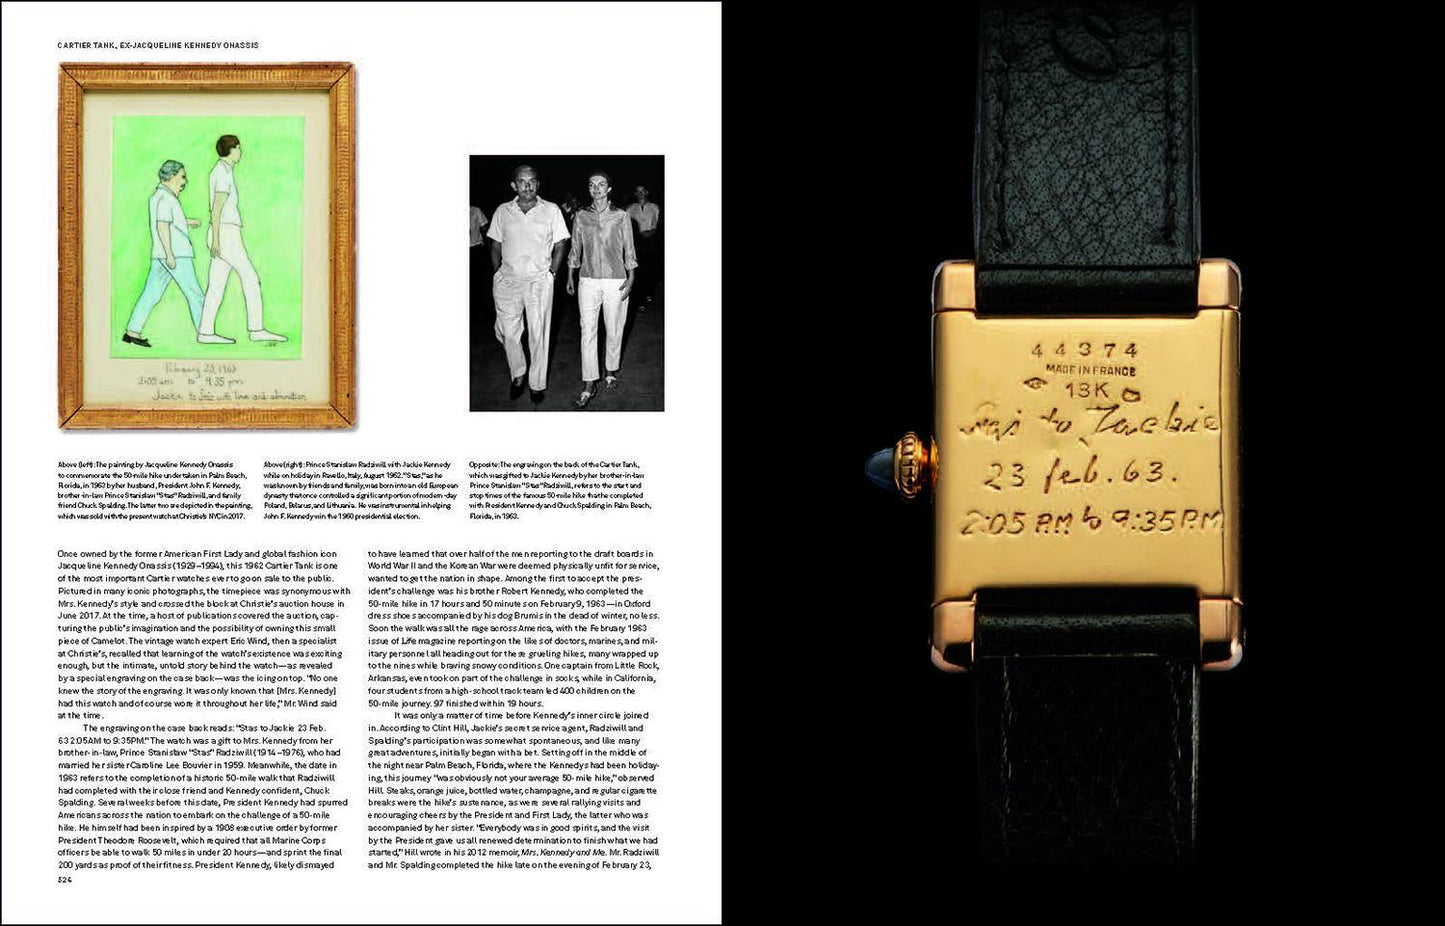 CARTIER TANK, EX-JACQUELINE KENNEDY ONASSIS
February 23, 1963
2:05 am to 9:35 pm
Jackie to Stas with love and admiration
Above (left): The painting by Jacqueline Kennedy Onassis
to commemorate the 50-mile hike undertaken in Palm Beach,
Florida, in 1963 by her husband, President John F. Kennedy,
brother-in-law Prince Stanislaw "Stas" Radziwill, and family
friend Chuck Spalding. The latter two are depicted in the painting,
which was sold with the present watch at Christie's NYC in 2017.
Above (right): Prince Stanislaw Radziwill with Jackie Kennedy
while on holiday in Ravello, Italy, August 1962. "Stas," as he
was known by friends and family, was born into an old European
dynasty that once controlled a significant portion of modern-day
Poland, Belarus, and Lithuania. He was instrumental in helping
John F. Kennedy win the 1960 presidential election.
Opposite: The engraving on the back of the Cartier Tank,
which was gifted to Jackie Kennedy by her brother-in-law
Prince Stanislaw "Stas" Radziwill, refers to the start and
stop times of the famous 50-mile hike that he completed
with President Kennedy and Chuck Spalding in Palm Beach,
Florida, in 1963.
Once owned by the former American First Lady and global fashion icon
Jacqueline Kennedy Onassis (1929–1994), this 1962 Cartier Tank is one
of the most important Cartier watches ever to go on sale to the public.
Pictured in many iconic photographs, the timepiece was synonymous with
Mrs. Kennedy's style and crossed the block at Christie's auction house in
June 2017. At the time, a host of publications covered the auction, cap-
turing the public's imagination and the possibility of owning this small
piece of Camelot. The vintage watch expert Eric Wind, then a specialist
at Christie's, recalled that learning of the watch's existence was exciting
enough, but the intimate, untold story behind the watch—as revealed
by a special engraving on the case back—was the icing on top. "No one
knew the story of the engraving. It was only known that [Mrs. Kennedy]
had this watch and of course wore it throughout her life," Mr. Wind said
at the time.
The engraving on the case back reads: "Stas to Jackie 23 Feb.
63 2:05AM to 9:35PM." The watch was a gift to Mrs. Kennedy from her
brother-in-law, Prince Stanisław "Stas" Radziwill (1914–1976), who had
married her sister Caroline Lee Bouvier in 1959. Meanwhile, the date in
1963 refers to the completion of a historic 50-mile walk that Radziwill
had completed with their close friend and Kennedy confident, Chuck
Spalding. Several weeks before this date, President Kennedy had spurred
Americans across the nation to embark on the challenge of a 50-mile
hike. He himself had been inspired by a 1908 executive order by former
President Theodore Roosevelt, which required that all Marine Corps
officers be able to walk 50 miles in under 20 hours—and sprint the final
200 yards as proof of their fitness. President Kennedy, likely dismayed
to have learned that over half of the men reporting to the draft boards in
World War II and the Korean War were deemed physically unfit for service,
wanted to get the nation in shape. Among the first to accept the pres-
ident's challenge was his brother Robert Kennedy, who completed the
50-mile hike in 17 hours and 50 minutes on February 9, 1963—in Oxford
dress shoes accompanied by his dog Brumis in the dead of winter, no less.
Soon the walk was all the rage across America, with the February 1963
issue of Life magazine reporting on the likes of doctors, marines, and mil-
itary personnel all heading out for these grueling hikes, many wrapped up
to the nines while braving snowy conditions. One captain from Little Rock,
Arkansas, even took on part of the challenge in socks, while in California,
four students from a high-school track team led 400 children on the
50-mile journey. 97 finished within 19 hours.
It was only a matter of time before Kennedy's inner circle joined
in. According to Clint Hill, Jackie's secret service agent, Radziwill and
Spalding's participation was somewhat spontaneous, and like many
great adventures, initially began with a bet. Setting off in the middle of
the night near Palm Beach, Florida, where the Kennedys had been holiday-
ing, this journey "was obviously not your average 50-mile hike," observed
Hill. Steaks, orange juice, bottled water, champagne, and regular cigarette
breaks were the hike's sustenance, as were several rallying visits and
encouraging cheers by the President and First Lady, the latter who was
accompanied by her sister. "Everybody was in good spirits, and the visit
by the President gave us all renewed determination to finish what we had
started," Hill wrote in his 2012 memoir, Mrs. Kennedy and Me. Mr. Radziwill
and Mr. Spalding completed the hike late on the evening of February 23,
324
44374
MADE IN FRANCE
18K
Stas to Jackie
23 feb. 63.
2:05 AM to 9:35 PM